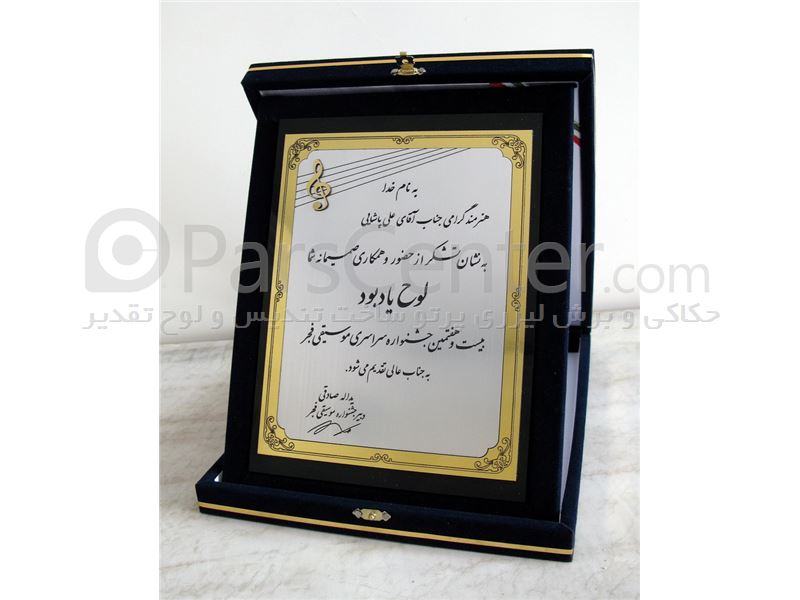 به نام خدا
هنرمند گرامی جناب آقای علی پاشایی
به نشان تشکر از حضور و همکاری صمیمانه شما
لوح یادبود
بیست و هفتمین جشنواره سراسری موسیقی فجر
به جناب عالی تقدیم می‌شود.
یداله صادقی
دبیر جشنواره موسیقی فجر
ParsCenter.com
حکاکی و برش لیزری پرتو ساخت تندیس و لوح تقدیر